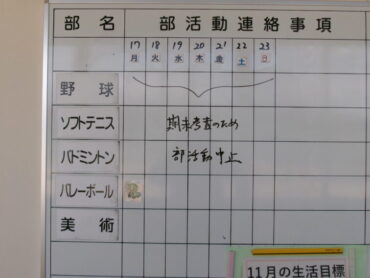 部名 部活動連絡事項
17 18 19 20 21 22 23
月 火 水 木 金 土 日
野球
ソフトテニス 期末考査のため
バドミントン 部活動中止
バレーボール
美術
11月の生活目標